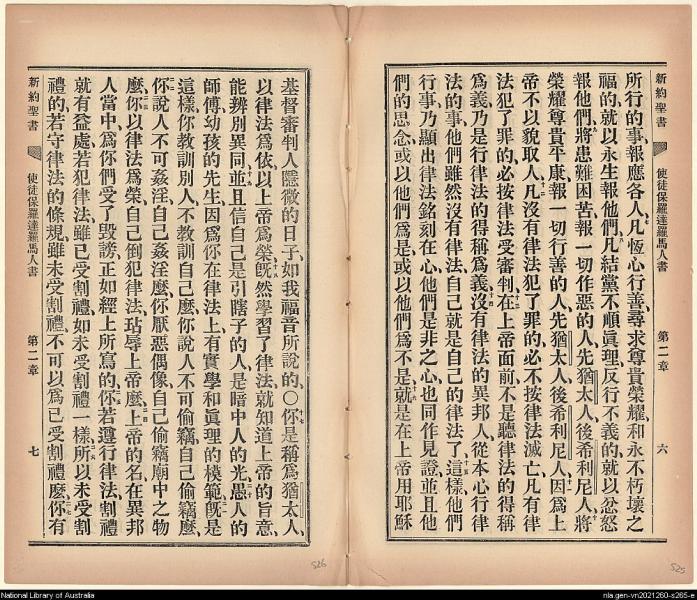 新約聖書 使徒保羅達羅馬人書 第二章 六
所行的事、報應各人、凡恆心行善、尋求尊貴榮耀、和永不朽壞之
福的、就以永生報他們、凡結黨不順眞理、反行不義的、就以忿怒
報他們、將患難困苦、報一切作惡的人、先猶太人、後希利尼人、將
榮耀尊貴平康、報一切行善的人、先猶太人、後希利尼人、因爲上
帝不以貌取人、凡沒有律法犯了罪的、必不按律法滅亡、凡有律
法犯了罪的、必按律法受審判、在上帝面前、不是聽律法的得稱
爲義、乃是行律法的得稱爲義、沒有律法的異邦人、從本心行律
法的事、他們雖然沒有律法、自己就是自己的律法了、這樣他們
行事、乃顯出律法銘刻在心、他們是非之心、也同作見證、並且他
們的思念、或以他們爲是、或以他們爲不是、就是在上帝用耶穌
基督審判人隱微的日子、如我福音所說的、〇你是稱爲猶太人、
以律法爲依、以上帝爲榮、旣然學習了律法、就知道上帝的旨意、
能辨別異同、並且信自己是引瞎子的人、是暗中人的光、愚人的
師傅、幼孩的先生、因爲你在律法上有實學和眞理的模範、旣是
這樣、你教訓別人、不教訓自己麼、你說人不可偷竊、自己偷竊麼、
你說人不可姦淫、自己姦淫麼、你厭惡偶像、自己偷竊廟中之物
麼、你以律法爲榮、自己倒犯律法、玷辱上帝麼、上帝的名、在異邦
人當中、爲你們受了毀謗、正如經上所寫的、你若遵行律法、割禮
就有益處、若犯律法、雖已受割禮、如未受割禮一樣、所以未受割
禮的、若守律法的條規、雖未受割禮、不可以爲已受割禮麼、你有
新約聖書 使徒保羅達羅馬人書 第二章 七
526
525
National Library of Australia
nla.gen-vn2021260-s265-e